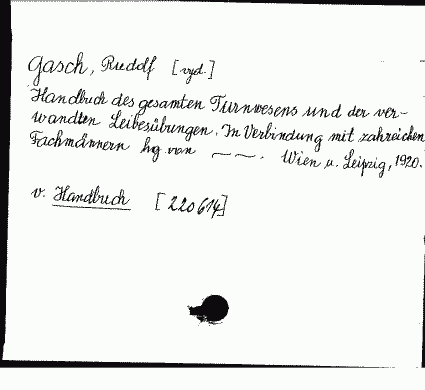 Gasch, Rudolf [vyd.]
Handbuch des gesamten Turnwesens und der ver-
wandten Leibesübungen. In Verbindung mit zahreichen
Fachmännern hg. von — —. Wien u. Leipzig, 1920.
v. Handbuch [220614]